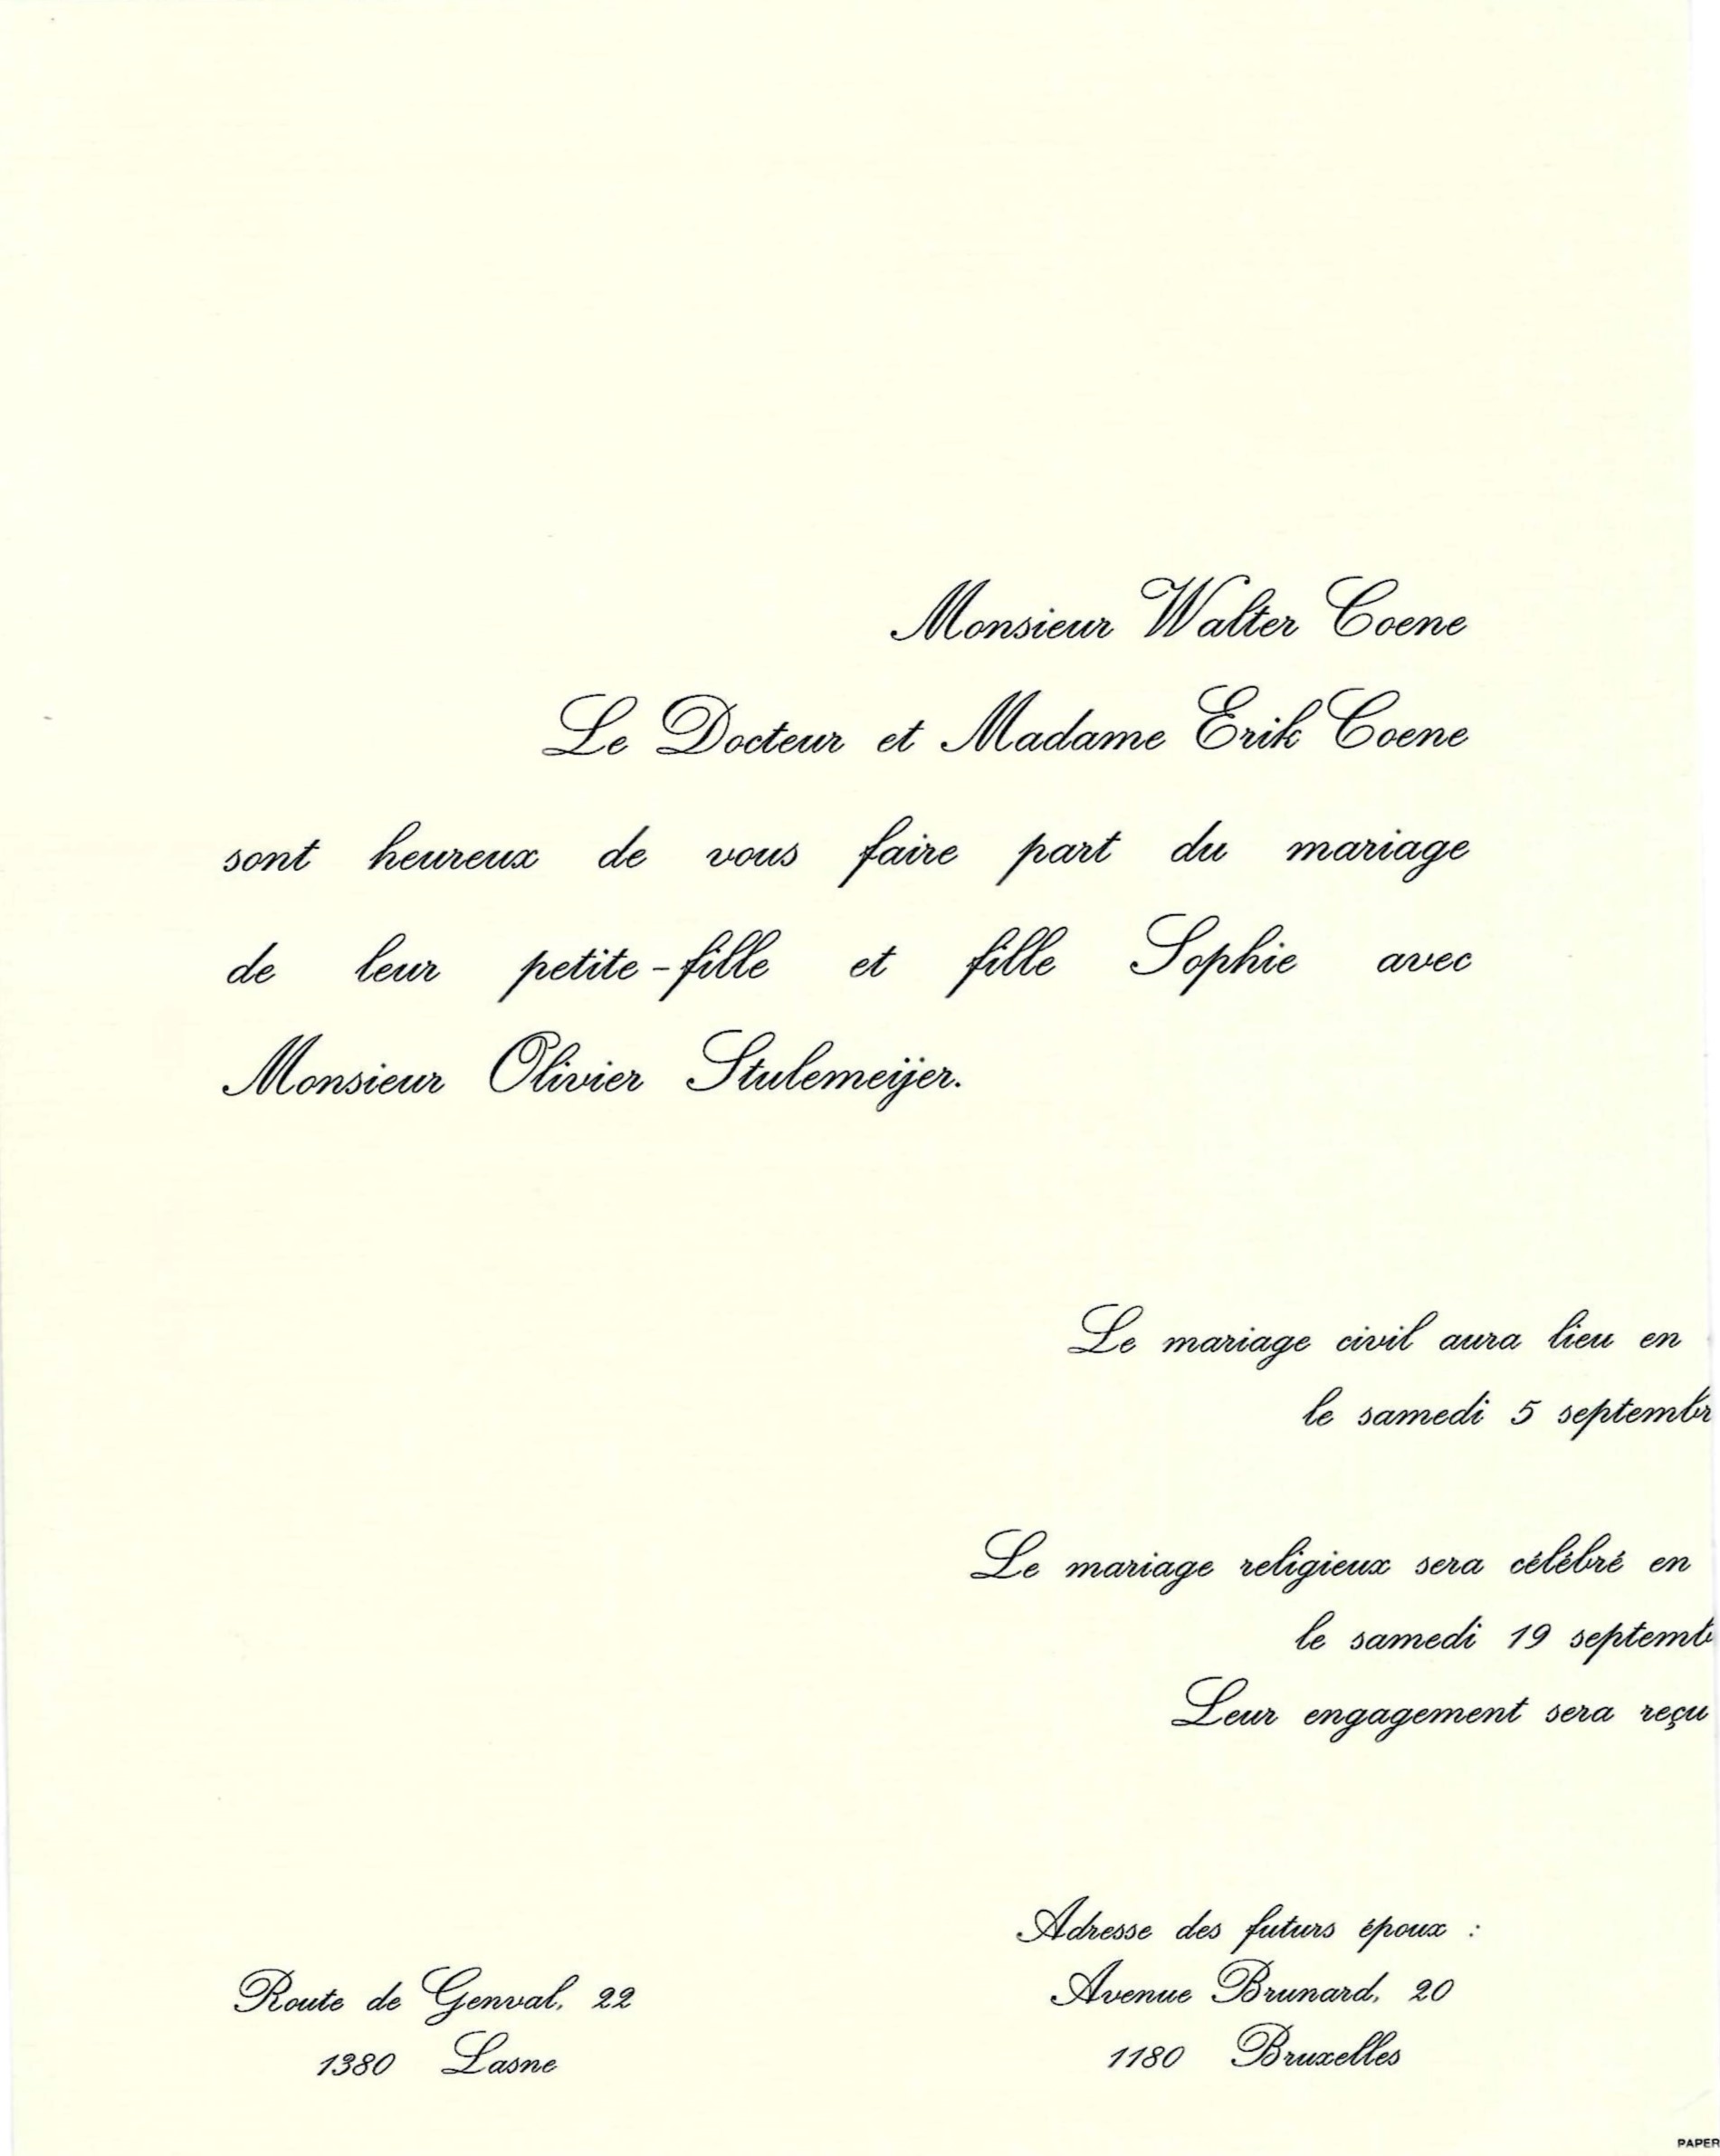 Monsieur Walter Coene
Le Docteur et Madame Erik Coene
sont heureux de vous faire part du mariage
de leur petite-fille et fille Sophie avec
Monsieur Olivier Stulemeijer.
Le mariage civil aura lieu en
le samedi 5 septembr
Le mariage religieux sera célébré en
le samedi 19 septemb
Leur engagement sera reçu
Adresse des futurs époux :
Avenue Brunard, 20
1180 Bruxelles
Route de Genval, 22
1380 Lasne
PAPER